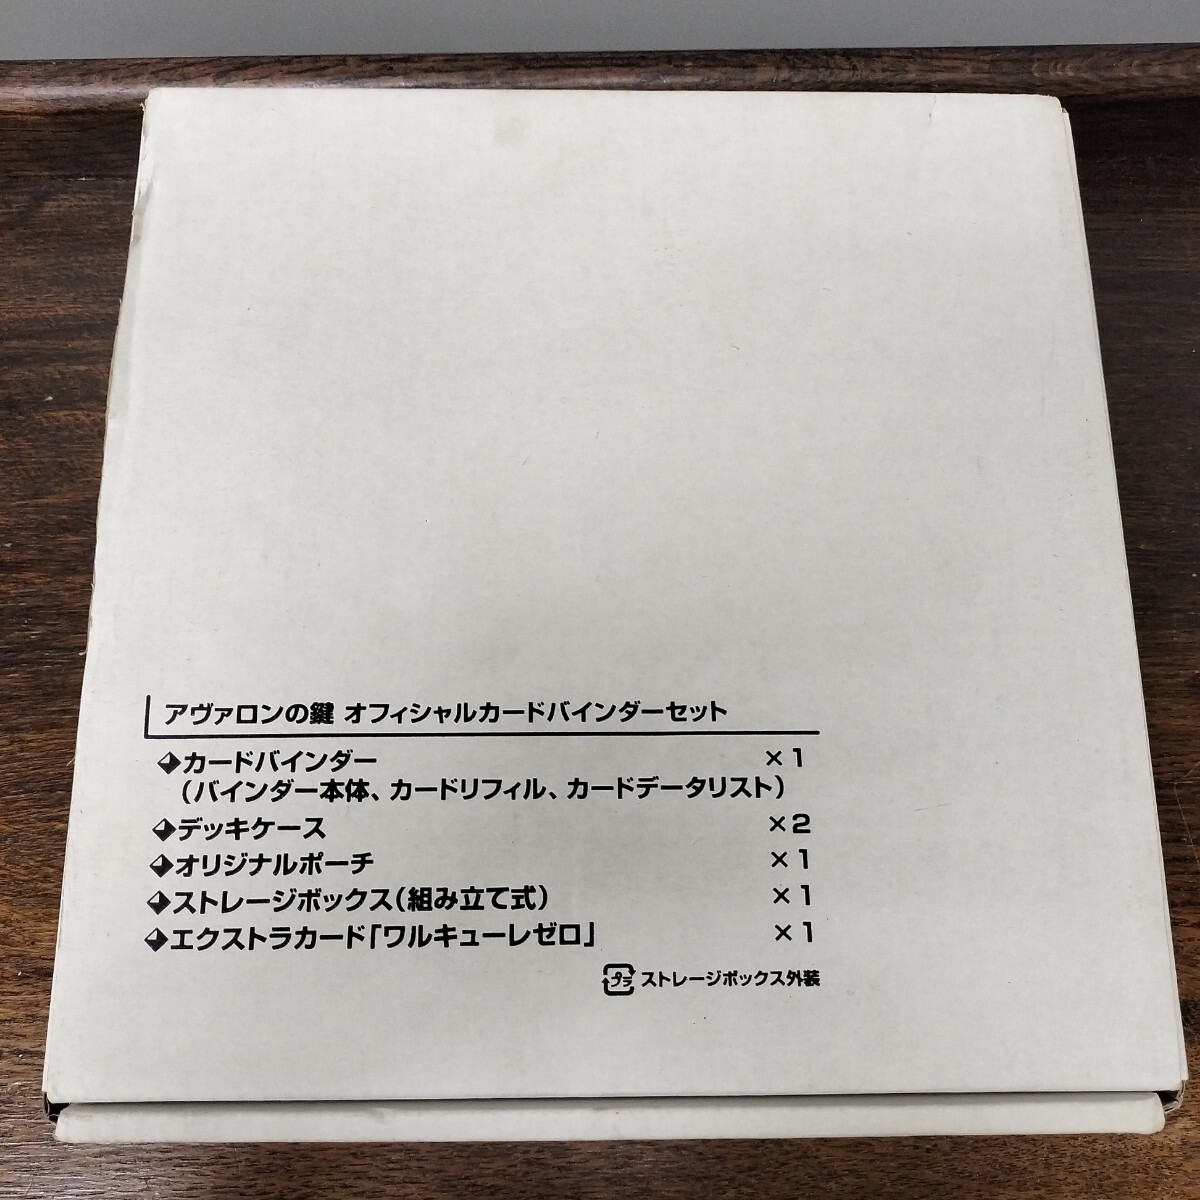 アヴァロンの鍵 オフィシャルカードバインダーセット
◆カードバインダー ×1
(バインダー本体、カードリフィル、カードデータリスト)
◆デッキケース ×2
◆オリジナルポーチ ×1
◆ストレージボックス(組み立て式) ×1
◆エクストラカード「ワルキューレゼロ」 ×1
プラ ストレージボックス外装